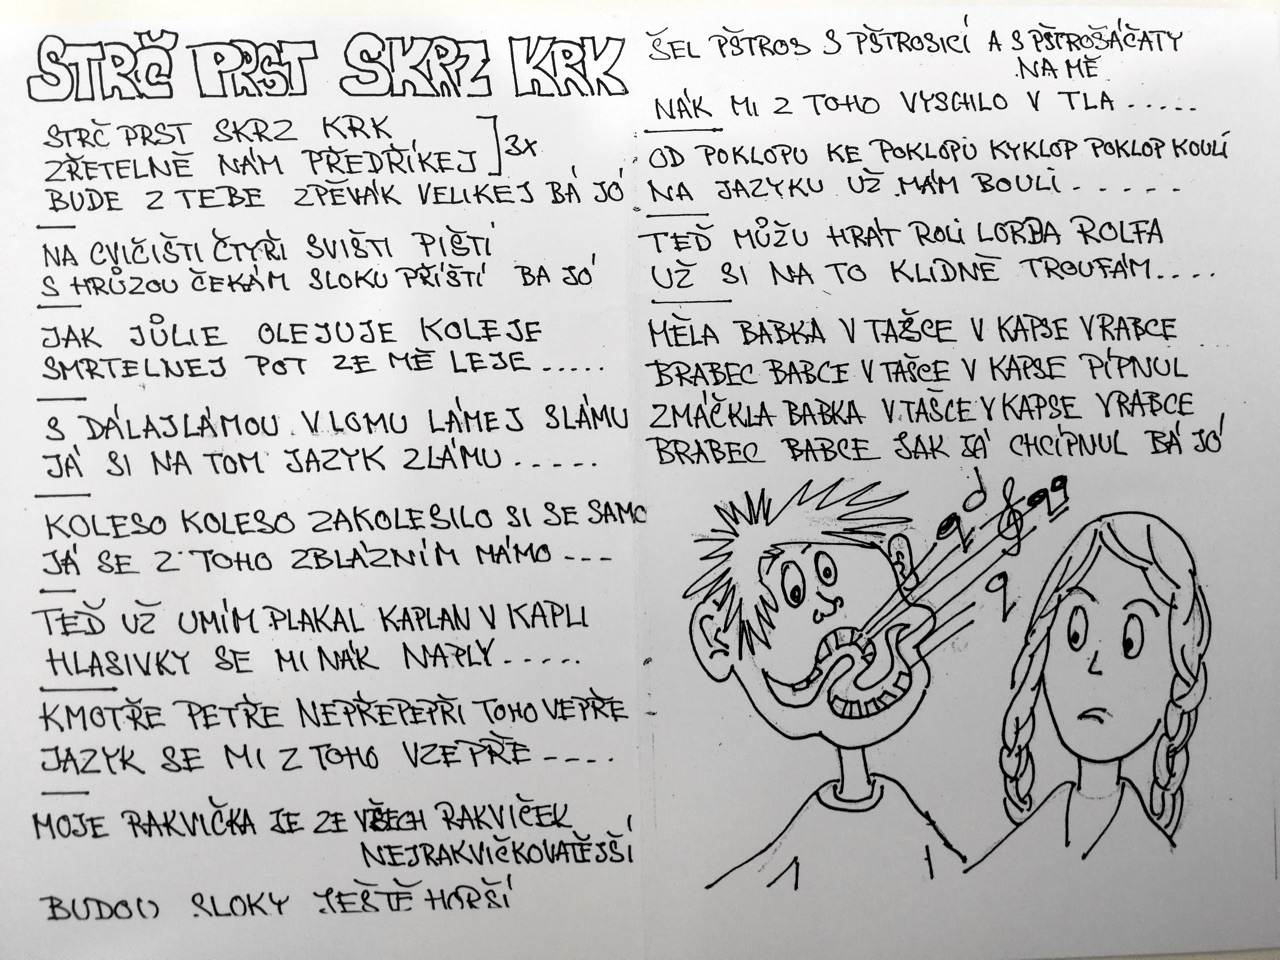 STRČ PRST SKRZ KRK
STRČ PRST SKRZ KRK
ZŘETELNĚ NÁM PŘEDŘÍKEJ ] 3x
BUDE Z TEBE ZPĚVÁK VELIKEJ BÁ JÓ
NA CVIČIŠTI ČTYŘI SVIŠTI PIŠTÍ
S HRŮZOU ČEKÁM SLOKU PŘÍŠTÍ BA JÓ
JAK JŮLIE OLEJUJE KOLEJE
SMRTELNEJ POT ZE MĚ LEJE .....
S DÁLAJLÁMOU V LOMU LÁMEJ SLÁMU
JÁ SI NA TOM JAZYK ZLÁMU .....
KOLESO KOLESO ZAKOLESILO SI SE SAMO
JÁ SE Z TOHO ZBLÁZNÍM MÁMO ---
TEĎ UŽ UMÍM PLAKAL KAPLAN V KAPLI
HLASIVKY SE MI ŇÁK NAPLY .....
KMOTŘE PETŘE NEPŘEPEPŘI TOHO VEPŘE
JAZYK SE MI Z TOHO VZEPŘE ----
MOJE RAKVIČKA JE ZE VŠECH RAKVIČEK
NEJRAKVIČKOVATĚJŠÍ
BUDOU SLOKY JEŠTĚ HORŠÍ
ŠEL PŠTROS S PŠTROSICÍ A S PŠTROSÁČATY
NA MĚ
ŇÁK MI Z TOHO VYSCHLO V TLA .....
OD POKLOPU KE POKLOPU KYKLOP POKLOP KOULÍ
NA JAZYKU UŽ MÁM BOULI .....
TEĎ MŮŽU HRÁT ROLI LORDA ROLFA
UŽ SI NA TO KLIDNĚ TROUFÁM....
MĚLA BABKA V TAŠCE V KAPSE VRABCE
BRABEC BABCE V TAŠCE V KAPSE PÍPNUL
ZMÁČKLA BABKA V TAŠCE V KAPSE VRABCE
BRABEC BABCE JAK JÁ CHCÍPNUL BÁ JÓ